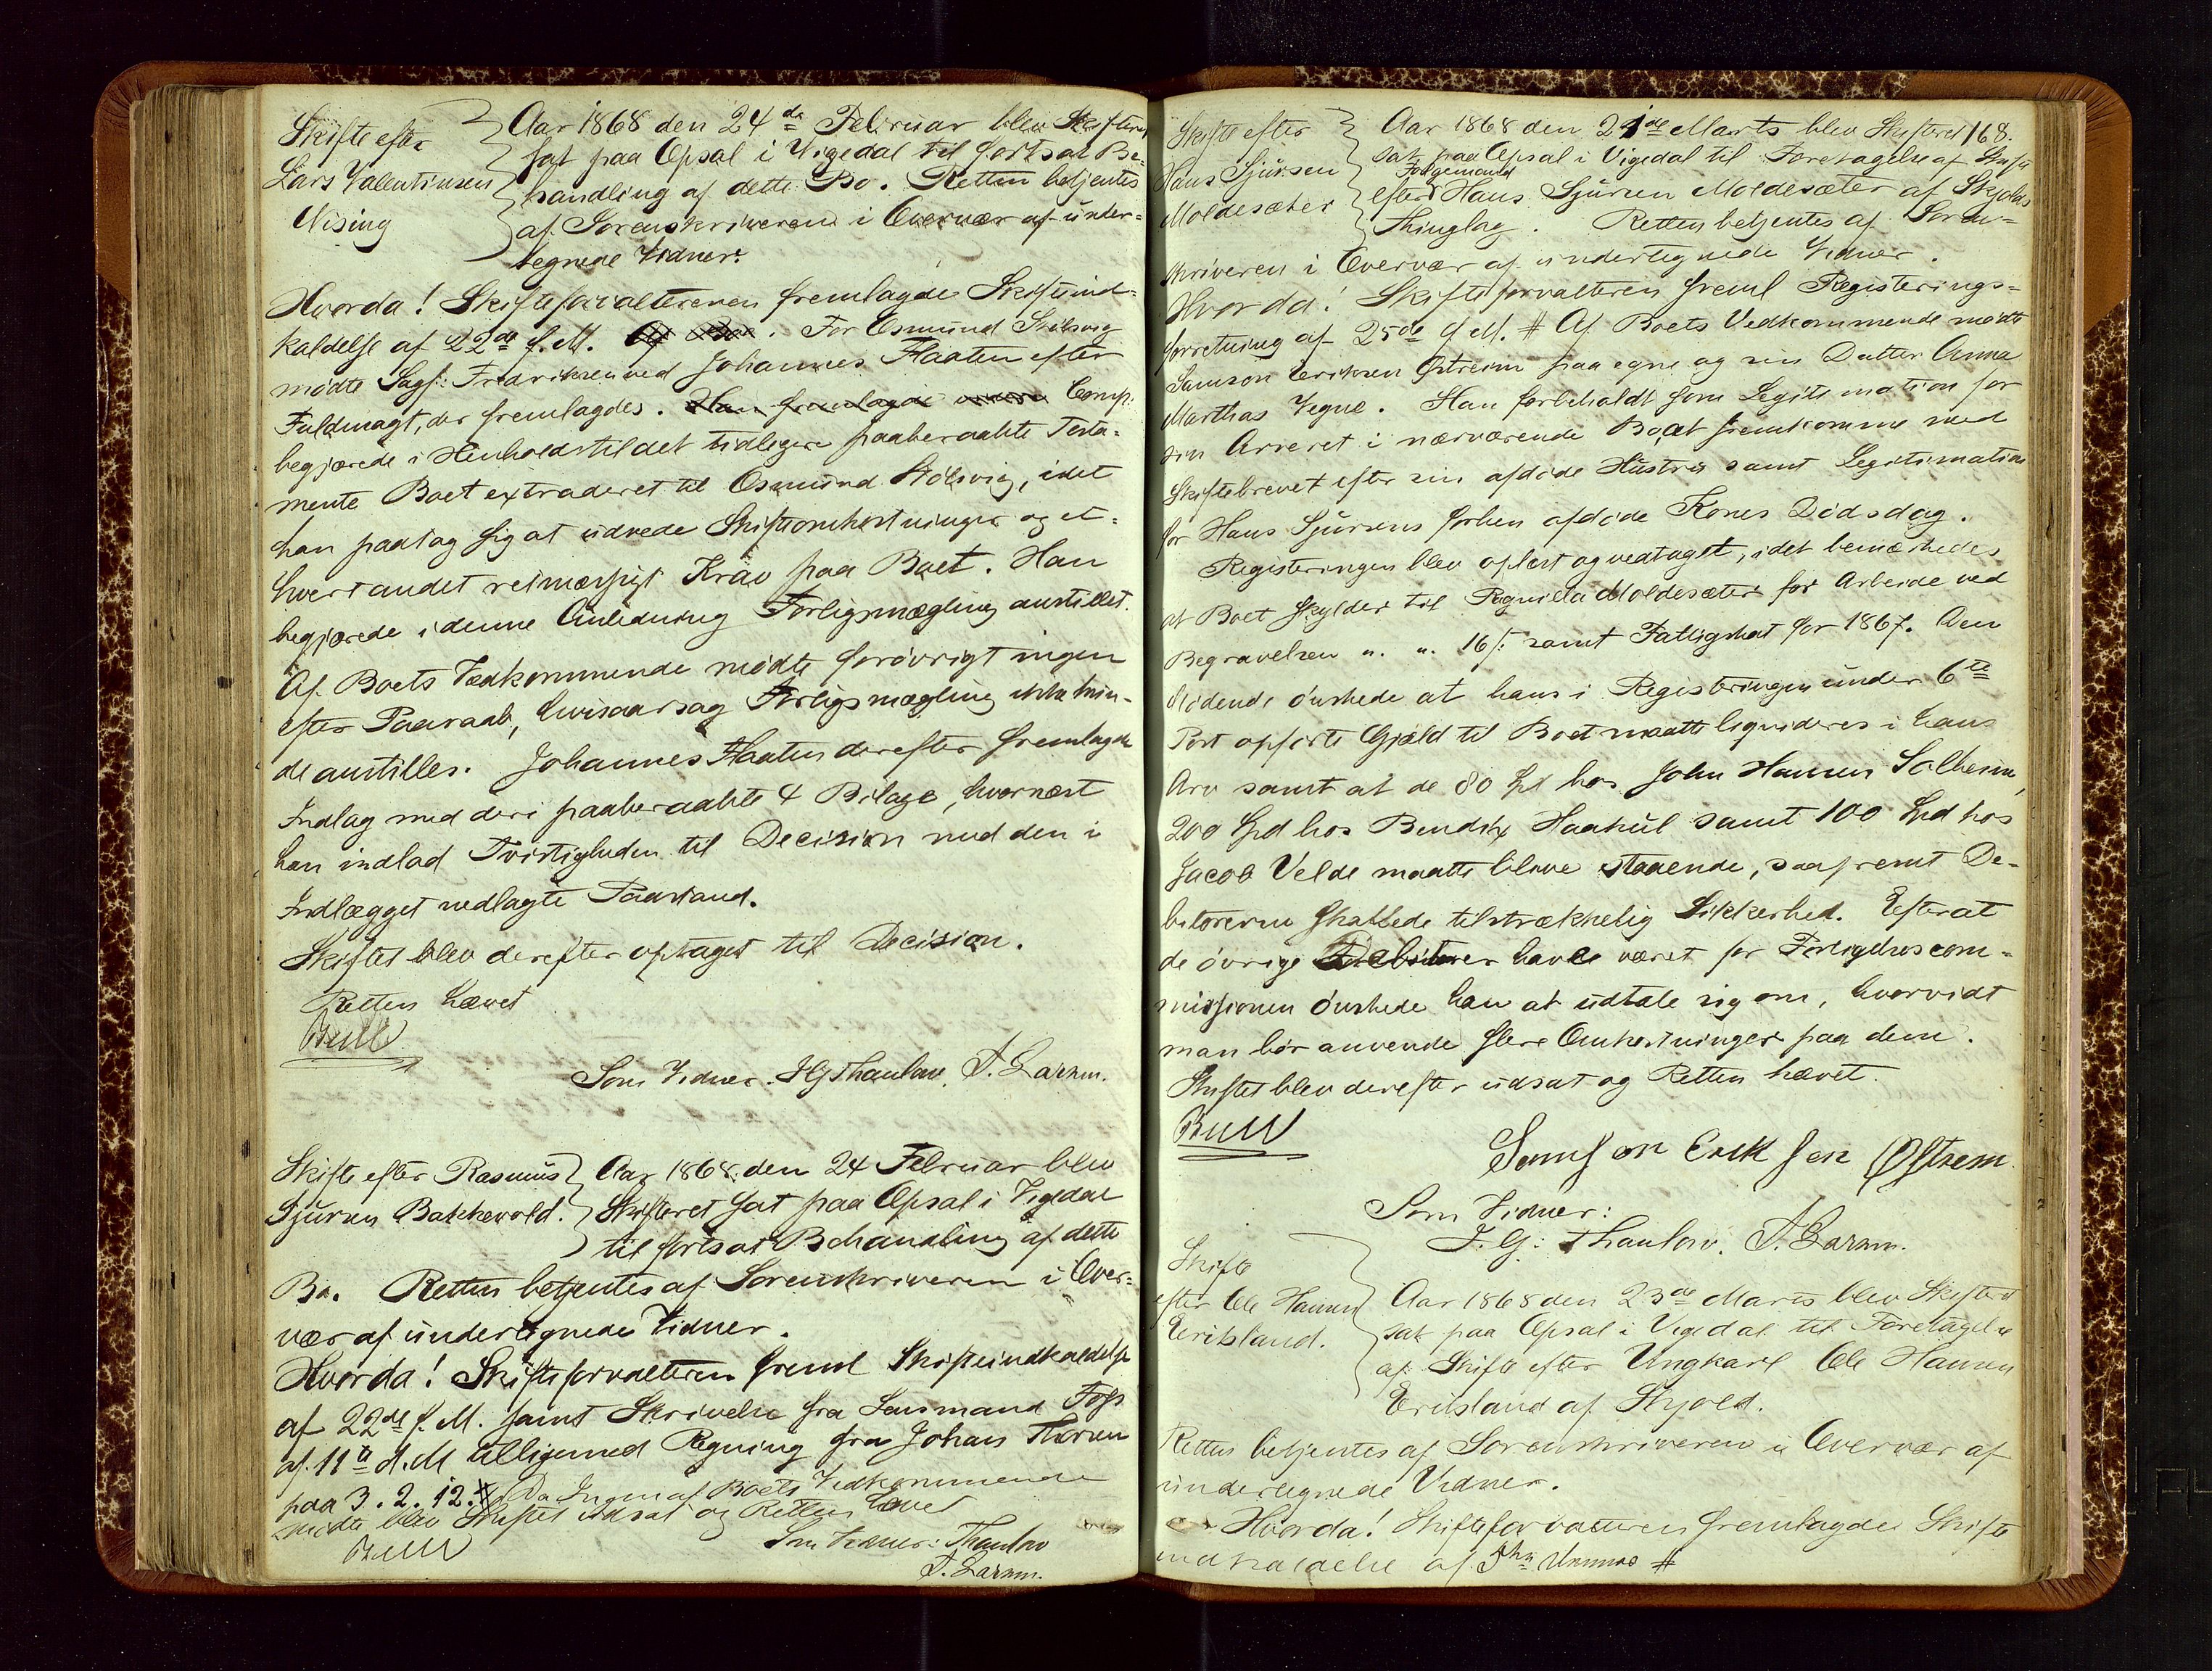 Skifte efter
Lars Valentinsen
Nising
Aar 1868 den 24de Februar blev Skifteret
sat paa Opsal i Vigedal til fortsat Be-
handling af dette Bo. Retten betjentes
af Sorenskriveren i Overvær af under-
tegnede Vidner.
Hvorda! Skifteforvalteren fremlagde Skifteind-
kaldelse af 22de f. M. For Osmund Stølsvig
mødte Sagf: Fredriksen ved Johannes Flaaten efter
Fuldmagt, der fremlagdes. Han fremlagde Comp.
begjærede i Henhold til det tidligere paaberaabte Testa-
mente Boet extraderet til Osmund Stølsvig, idet
han paatog sig at udrede Skifteomkostninger og et-
hvert andet retmæssigt Krav paa Boet. Han
begjærede i denne Anledning Forligsmægling anstillet.
Af Boets Vedkommende mødte forøvrigt ingen
efter Paaraab, hvisaarsag Forligsmægling ikke kun-
de anstilles. Johannes Flaaten derefter fremlagde
Indlag med deri paaberaabte 4 Bilage, hvornæst
han indlod Tvistigheden til Decision med den i
Indlægget nedlagte Paastand.
Skiftet blev derefter optaget til Decision.
Retten hævet
Bull
Som Vidner. J G Thaulow. T. Larsen.
Skifte efter Rasmus
Sjursen Bakkevold.
Aar 1868 den 24 Februar blev
Skifteret sat paa Opsal i Vigedal
til fortsat Behandling af dette
Bo. Retten betjentes af Sorenskriveren i Over-
vær af undertegnede Vidner.
Hvorda! Skifteforvalteren freml Skifteindkaldelse
af 22de f. M. samt Skrivelse fra Lensmand Foss
af 11te d. M tilligemed Regning fra Johan Thorsen
paa 3. 2. 12. Da Ingen af Boets Vedkommende
mødte blev Skiftet udsat og Retten hævet
Bull
Som Vidner: Thaulow
T. Larsen.
168.
Skifte efter
Hans Sjursen
Moldesæter
Aar 1868 den 21de Marts blev Skifteret
sat paa Opsal i Vigedal til Foretagelse af Skifte
Folgemand
efter Hans Sjursen Moldesæter af Skjolds
Thinglag. Retten betjentes af Soren-
skriveren i Overvær af undertegnede Vidner.
Hvorda! Skifteforvalteren freml Registerings-
forretning af 25de f M. # Af Boets Vedkommende mødte
Samson Eriksen Østreim paa egne og sin Datter Anna
Marthas Vegne. Han forbeholdt som Legitimation for
sin Arveret i nærværende Bo at fremkomme med
Skiftebrevet efter sin afdøde Hustru samt Legitimation
for Hans Sjursens forhen afdøde Kones Dødsdag.
Registeringen blev oplæst og vedtaget, idet bemærkedes
at Boet skylder til Ragnilda Moldesæter for Arbeide ved
Begravelsen „. „. 16 s. samt Fatligskat for 1867. Den
Mødende ønskede at hans i Registeringen under 6te
Post opførte Gjæld til Boet maatte liquideres i hans
Arv samt at de 80 Spd hos John Hansen Solheim,
200 Spd hos Bendix Haakul samt 100 Spd hos
Jacob Velde maatte blive staaende, saafremt De-
bitorerne skaffede tilstrækkelig Sikkerhed. Efterat
de øvrige Debitorer havde været for Forligelsescom-
missionen ønskede han at udtale sig om, hvorvidt
man bør anvende flere Omkostninger paa dem.
Skiftet blev derefter udsat og Retten hævet.
Bull
Samson Erik sen Østrem
Som Vidner:
J. G: Thaulow. T. Larsen.
Skifte
efter Ole Hansen
Erilsland.
Aar 1868 den 23de Marts blev Skifteret
sat paa Opsal i Vigedal til Foretagelse
af Skifte efter Ungkarl Ole Hansen
Erilsland af Skjold.
Retten betjentes af Sorenskriveren i Overvær af
undertegnede Vidner.
Hvorda! Skifteforvalteren fremlagde Skifte
indkaldelse af